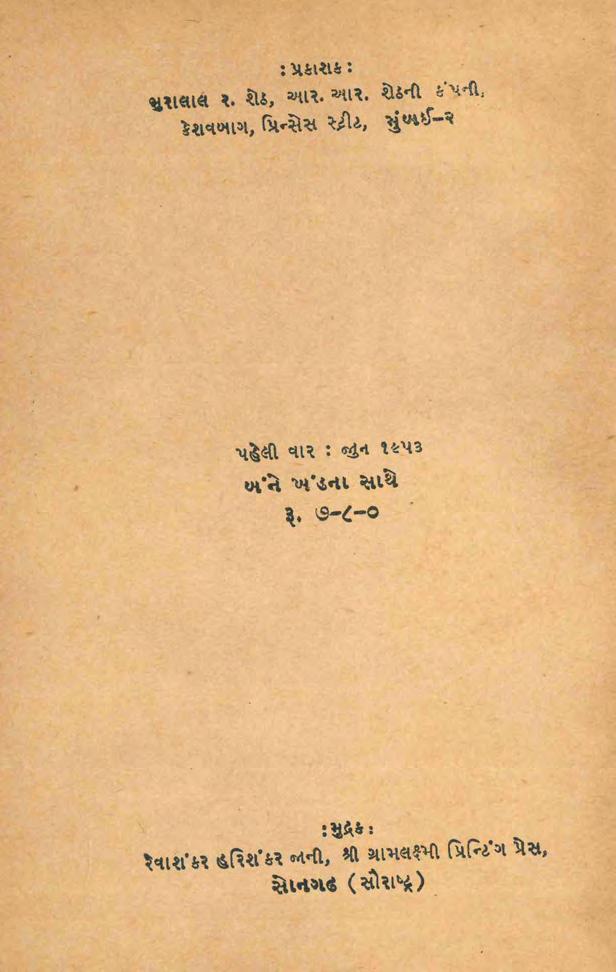 : પ્રકાશક :
ભુરાલાલ ર. શેઠ, આર. આર. શેઠની કંપની,
કેશવબાગ, પ્રિન્સેસ સ્ટ્રીટ, મુંબઈ–૨
પહેલી વાર : જુન ૧૯૫૩
બંને ખંડના સાથે
રૂ. ૭–૮–૦
: મુદ્રક :
રેવાશંકર હરિશંકર જાની, શ્રી ગ્રામલક્ષ્મી પ્રિન્ટિંગ પ્રેસ,
સોનગઢ ( સૌરાષ્ટ્ર )